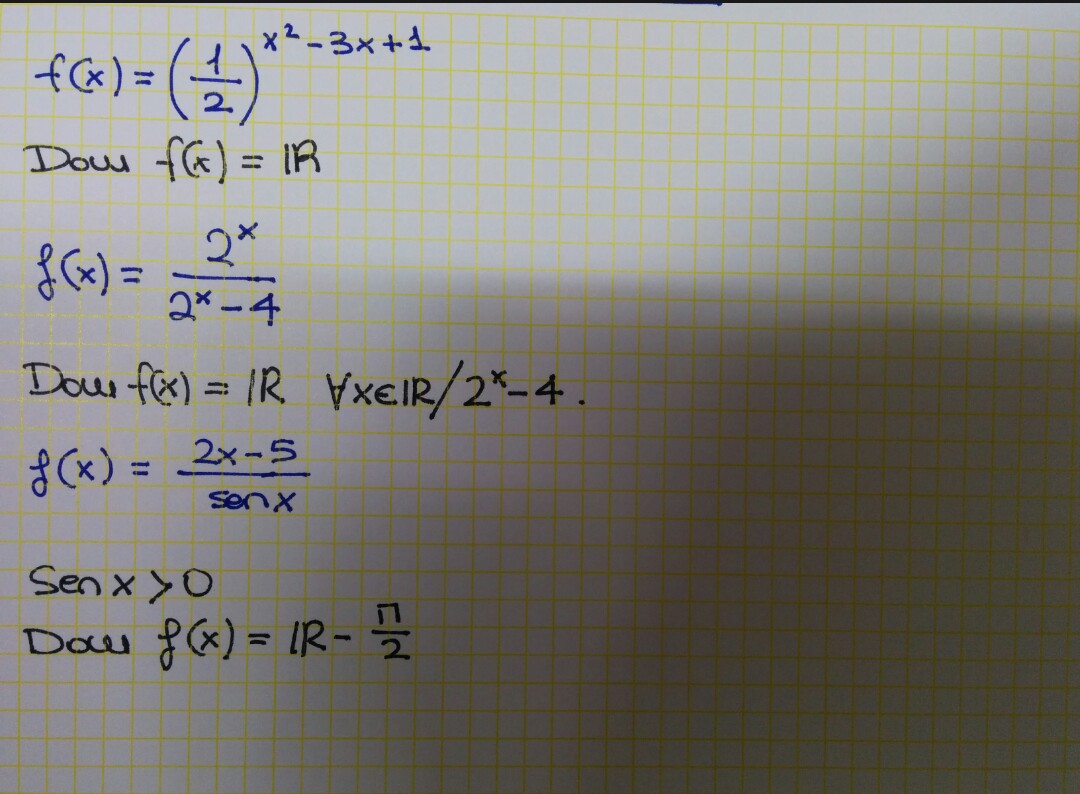 f(x) = (1/2)^x²-3x+1
Dom f(x) = ℝ
f(x) = 2^x / 2^x - 4
Dom f(x) = ℝ ∀x∈ℝ/2^x-4.
f(x) = 2x-5 / sen x
Sen x > 0
Dom f(x) = ℝ - π/2